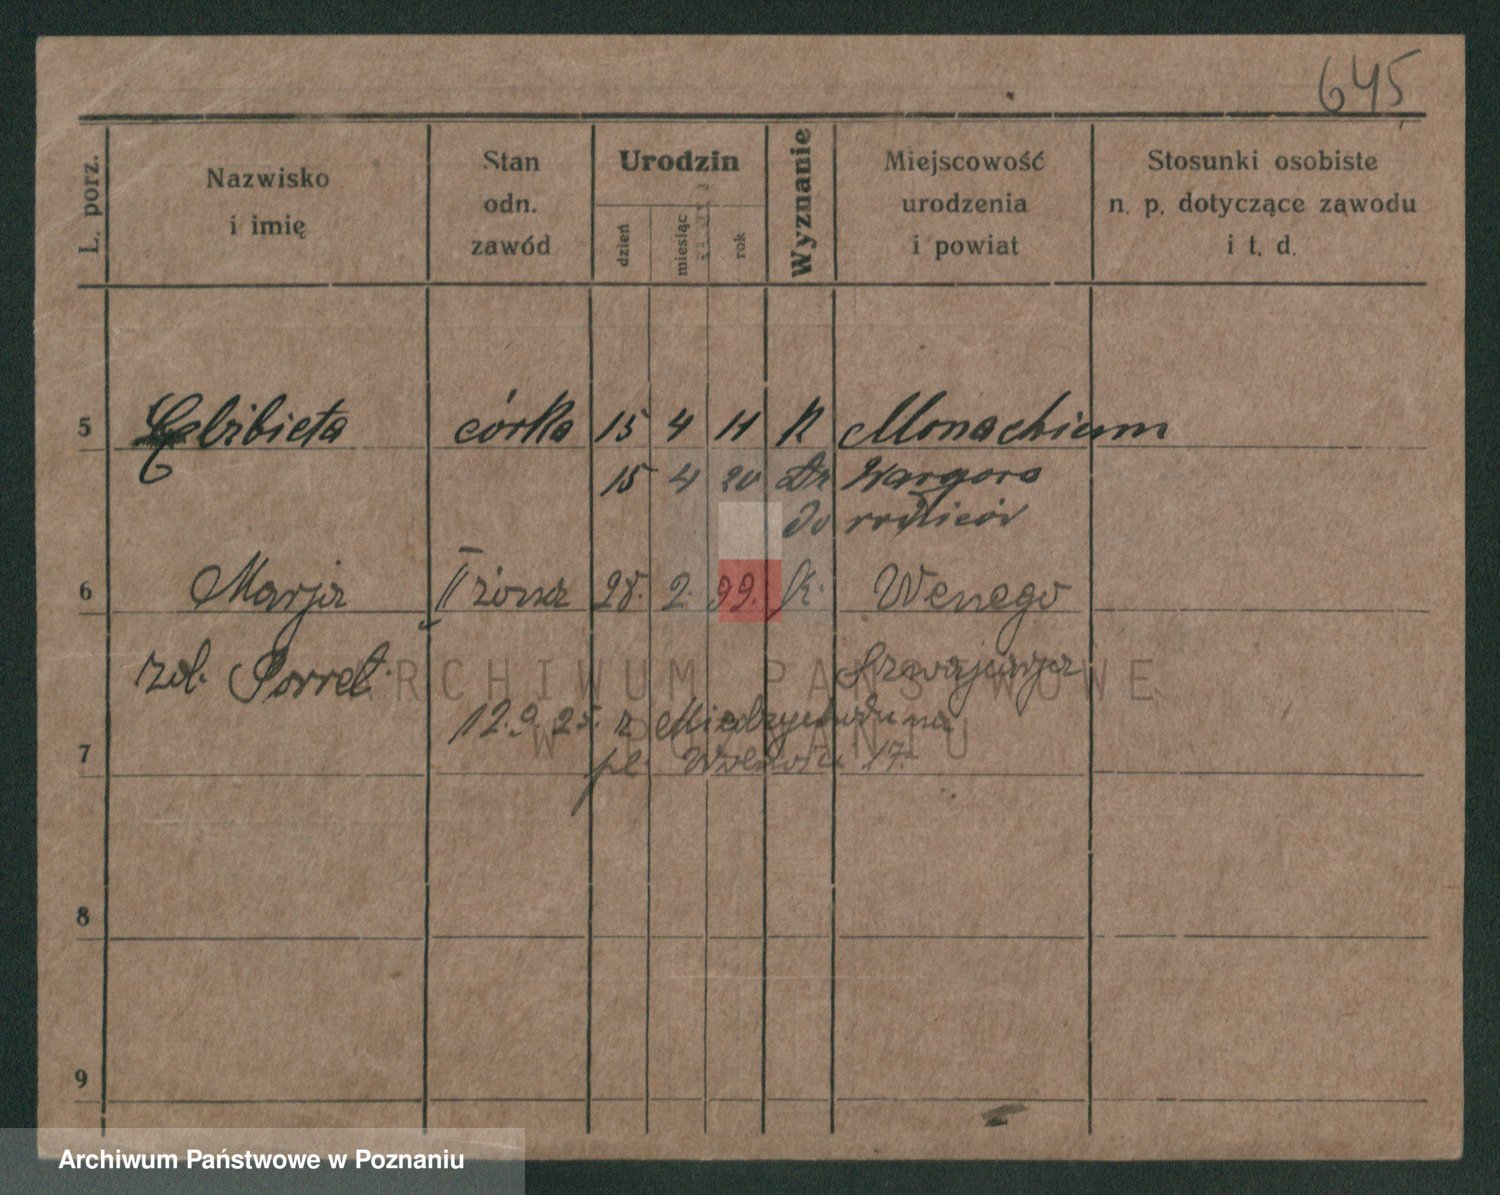 645
L. porz.
Nazwisko
i imię
Stan
odn.
zawód
Urodzin
dzień
miesiąc
rok
Wyznanie
Miejscowość
urodzenia
i powiat
Stosunki osobiste
n. p. dotyczące zawodu
i t. d.
5 Elżbieta córka 15 4 11 K Monachium
15 4 20
do rodziców
6 Marja II żona 28. 2. 99. K.
zd. Porret Szwajcarja
ARCHIWUM PAŃSTWOWE
W POZNANIU
12.9.25. z Międzychodu na
7 pl. Wolności 17.
8
9
Archiwum Państwowe w Poznaniu